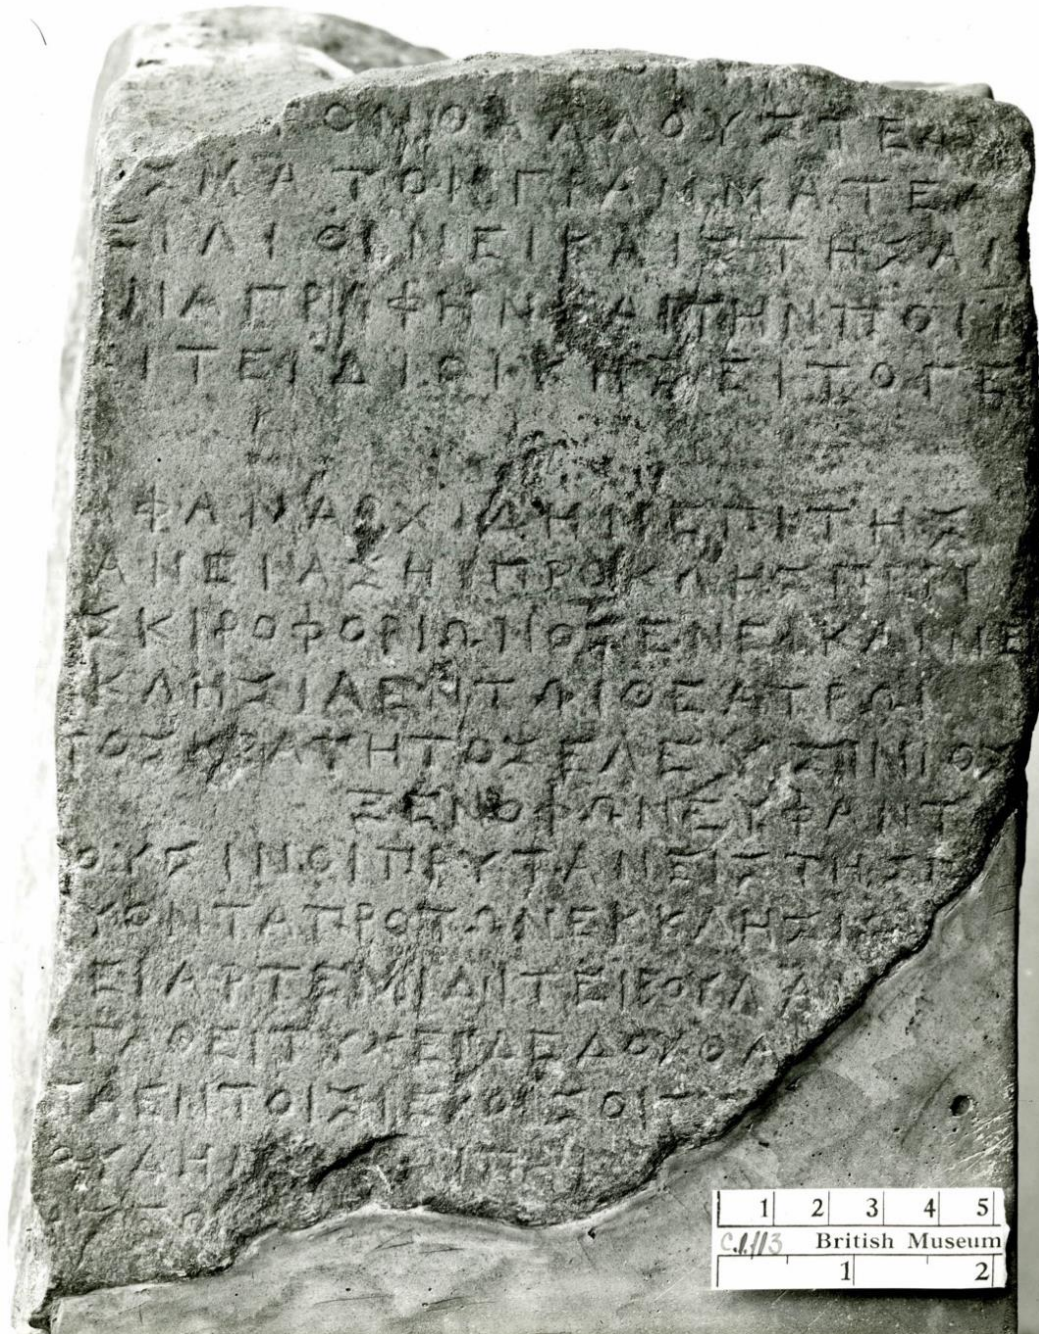 ΟΝΘΑΛΛΟΥΣΤΕΦ
ΣΜΑΤΟΝΓΡΑΜΜΑΤΕΑ
ΕΙΛΙΘΙΝΕΙΚΑΙΣΤΗΣΑΙ
ΝΑΓΡΑΦΗΝΚΑΙΤΗΝΠΟΙΗ
ΙΤΕΙΔΙΟΙΚΗΣΕΙΤΟΓΕ
ΦΑΝΑΟΧΙΔΗΝΕΠΙΤΗΣ
ΑΝΕΙΑΣΗΙΠΡΟΚΛΗΣΠΕΡΙ
ΣΚΙΡΟΦΟΡΙΩΝΟΣΕΝΕΙΚΑΙΝΕ
ΚΛΗΣΙΑΕΝΤΩΙΘΕΑΤΡΩΙ
ΤΟΣΚΡΑΤΗΤΟΣΕΛΕΥΣΙΝΙΟΣ
ΞΕΝΟΦΩΝΕΥΦΑΝΤ
ΟΥΣΙΝΟΙΠΡΥΤΑΝΕΙΣΤΗΣΕ
ΥΟΝΤΑΠΡΟΤΩΝΕΚΚΛΗΣΙΩ
ΕΙΑΡΤΕΜΙΔΙΤΕΙΒΟΥΛΑΙ
ΤΥΘΕΙΤΥΧΕΙΔΕΔΟΧΘΑ
ΓΑΕΝΤΟΙΣΙΕΡΟΙΣΟΙΣ
ΟΥΛΗΙ